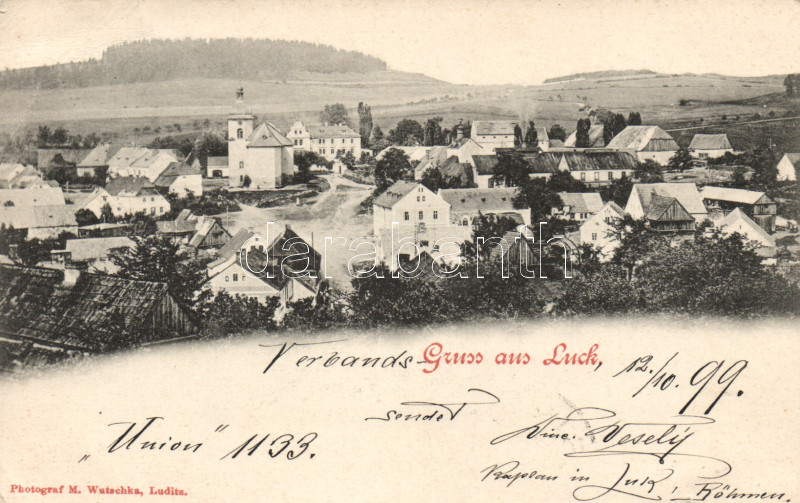 darabanth
Verbands- Gruss aus Luck, 12./10. 99.
sendet
„Union" 1133.
Vinc. Veselý
Kaplan in Luk, Böhmen.
Photograf M. Wutschka, Luditz.